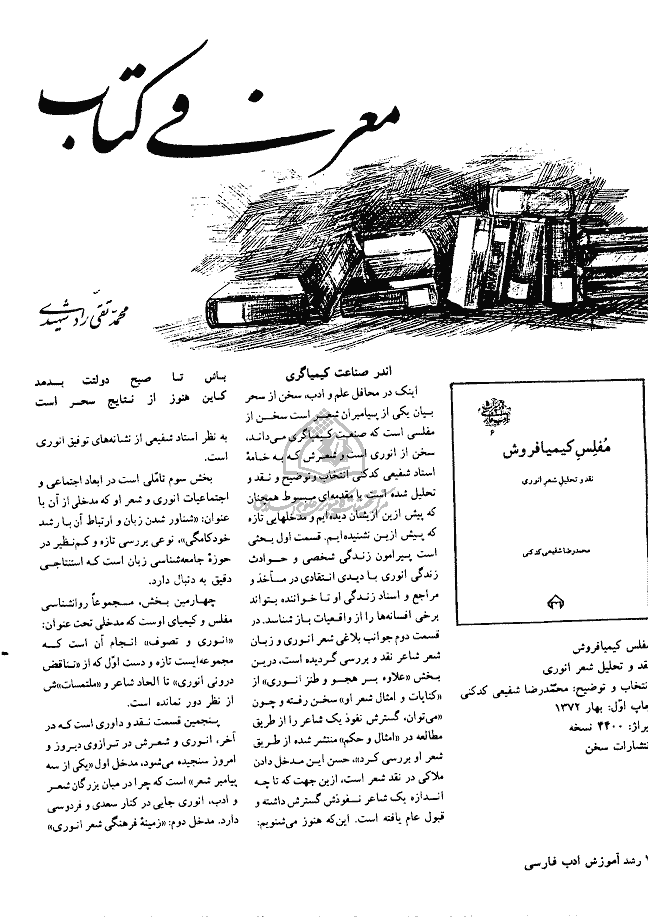 معرفی کتاب
محمّدتقی راد شهیدی
مُفلِسِ کیمیافروش
نقد و تحلیل شعر انوری
محمدرضا شفیعی کدکنی
مفلس کیمیافروش
نقد و تحلیل شعر انوری
انتخاب و توضیح: محمّدرضا شفیعی کدکنی
چاپ اوّل: بهار ۱۳۷۲
تیراژ: ۴۴۰۰ نسخه
انتشارات سخن
اندر صناعت کیمیاگری
اینک در محافل علم و ادب، سخن از سحر
بیان یکی از پیامبران شعر است سخن از
مفلسی است که صنعت کیمیاگری می‌داند،
سخن از انوری است و شعرش که به خامهٔ
استاد شفیعی کدکنی انتخاب و توضیح و نقد و
تحلیل شده است با مقدمه‌ای مبسوط همچنان
که پیش ازین ازیشان دیده‌ایم و مدخلهایی تازه
که پیش ازین نشنیده‌ایم. قسمت اول بحثی
است پیرامون زندگی شخصی و حوادث
زندگی انوری با دیدی انتقادی در مآخذ و
مراجع و اسناد زندگی او تا خواننده بتواند
برخی افسانه‌ها را از واقعیات باز شناسد. در
قسمت دوم جوانب بلاغی شعر انوری و زبان
شعر شاعر نقد و بررسی گردیده است، درین
بخش «علاوه بر هجو و طنز انوری» از
«کنایات و امثال شعر او» سخن رفته و چون
«می‌توان، گسترش نفوذ یک شاعر را از طریق
مطالعه در «امثال و حکم» منتشر شده از طریق
شعر او بررسی کرد»، حسن این مدخل دادن
ملاکی در نقد شعر است، ازین جهت که تا چه
اندازه یک شاعر نفوذش گسترش داشته و
قبول عام یافته است. این‌که هنوز می‌شنویم:
باش تا صبح دولتت بدمد
کاین هنوز از نتایج سحر است
به نظر استاد شفیعی از نشانه‌های توفیق انوری
است.
بخش سوم تأمّلی است در ابعاد اجتماعی و
اجتماعیات انوری و شعر او که مدخلی از آن با
عنوان: «شناور شدن زبان و ارتباط آن با رشد
خودکامگی»، نوعی بررسی تازه و کم‌نظیر در
حوزهٔ جامعه‌شناسی زبان است که استنتاجی
دقیق به دنبال دارد.
چهارمین بخش، مجموعاً روانشناسی
مفلس و کیمیای اوست که مدخلی تحت عنوان:
«انوری و تصوف» انجام آن است که
مجموعه‌ایست تازه و دست اوّل که از «تناقض
درونی انوری» تا الحاد شاعر و «ملتمسات»ش
از نظر دور نمانده است.
پنجمین قسمت نقد و داوری است که در
آخر، انوری و شعرش در ترازوی دیروز و
امروز سنجیده می‌شود، مدخل اول «یکی از سه
پیامبر شعر» است که چرا در میان بزرگان شعر
و ادب، انوری جایی در کنار سعدی و فردوسی
دارد. مدخل دوم: «زمینهٔ فرهنگی شعر انوری»
رشد آموزش ادب فارسی